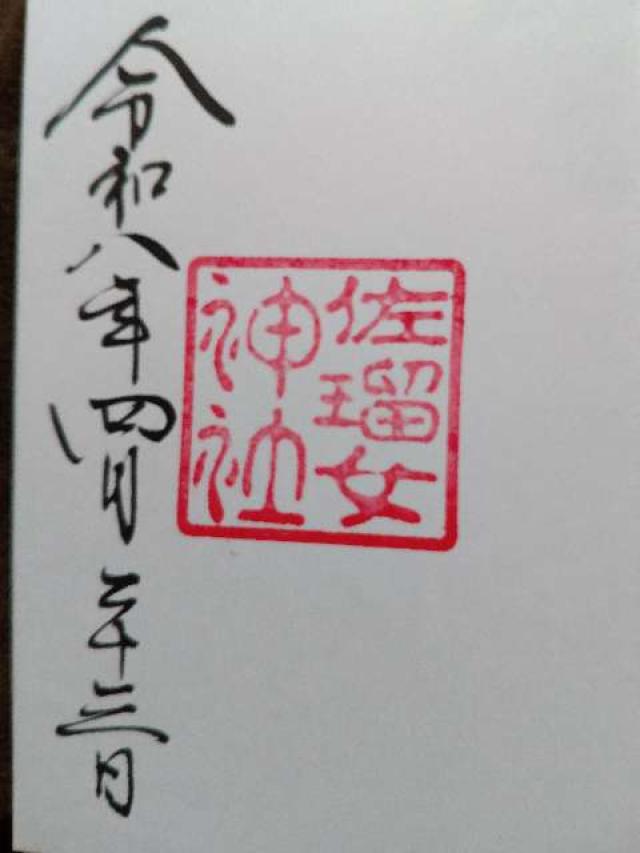 佐瑠女
神社
令和八年四月二十三日